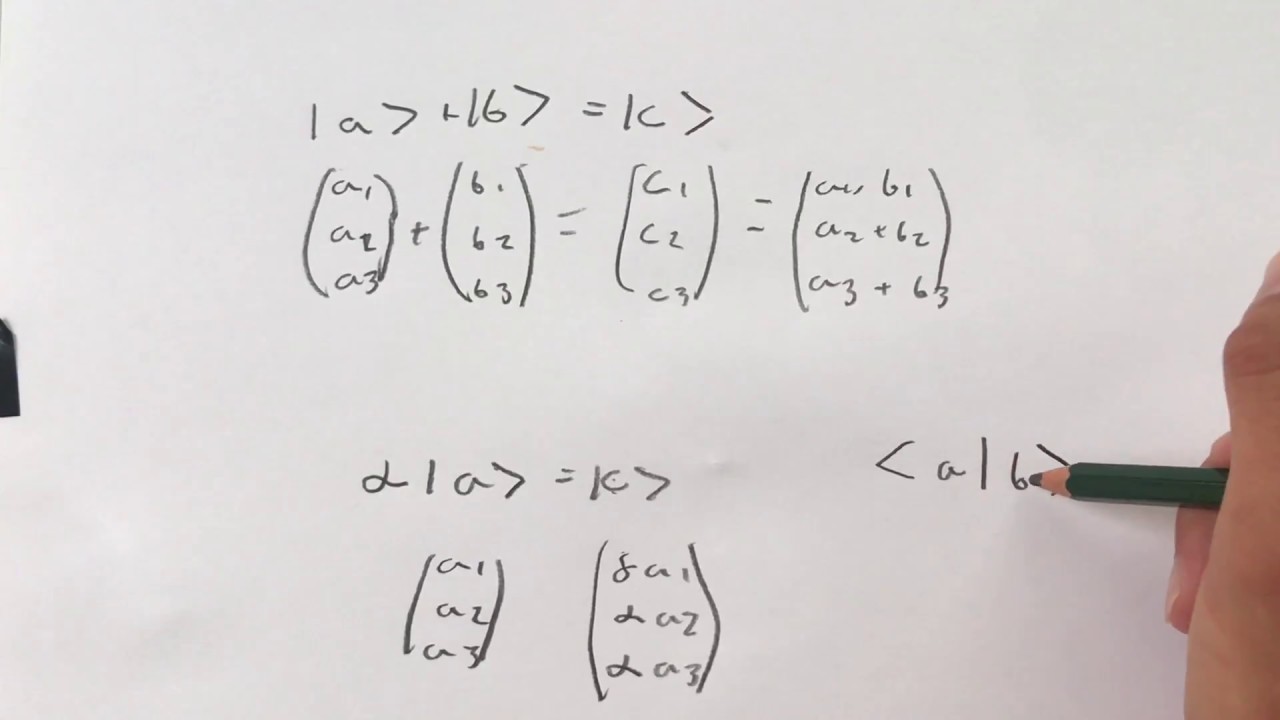 |a> + |b> = |c>
(a1 a2 a3) + (b1 b2 b3) = (c1 c2 c3) = (a1, b1 a2 + b2 a3 + b3)
α|a> = |c>
<a|b>
(a1 a2 a3) (αa1 αa2 αa3)